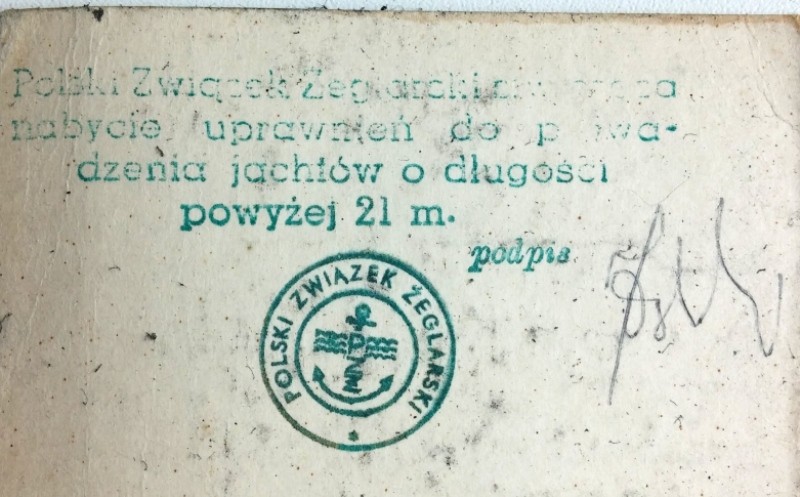 Polski Związek Żeglarski
nabycie uprawnień do prowa-
dzenia jachtów o długości
powyżej 21 m.
podpis
POLSKI ZWIĄZEK ŻEGLARSKI